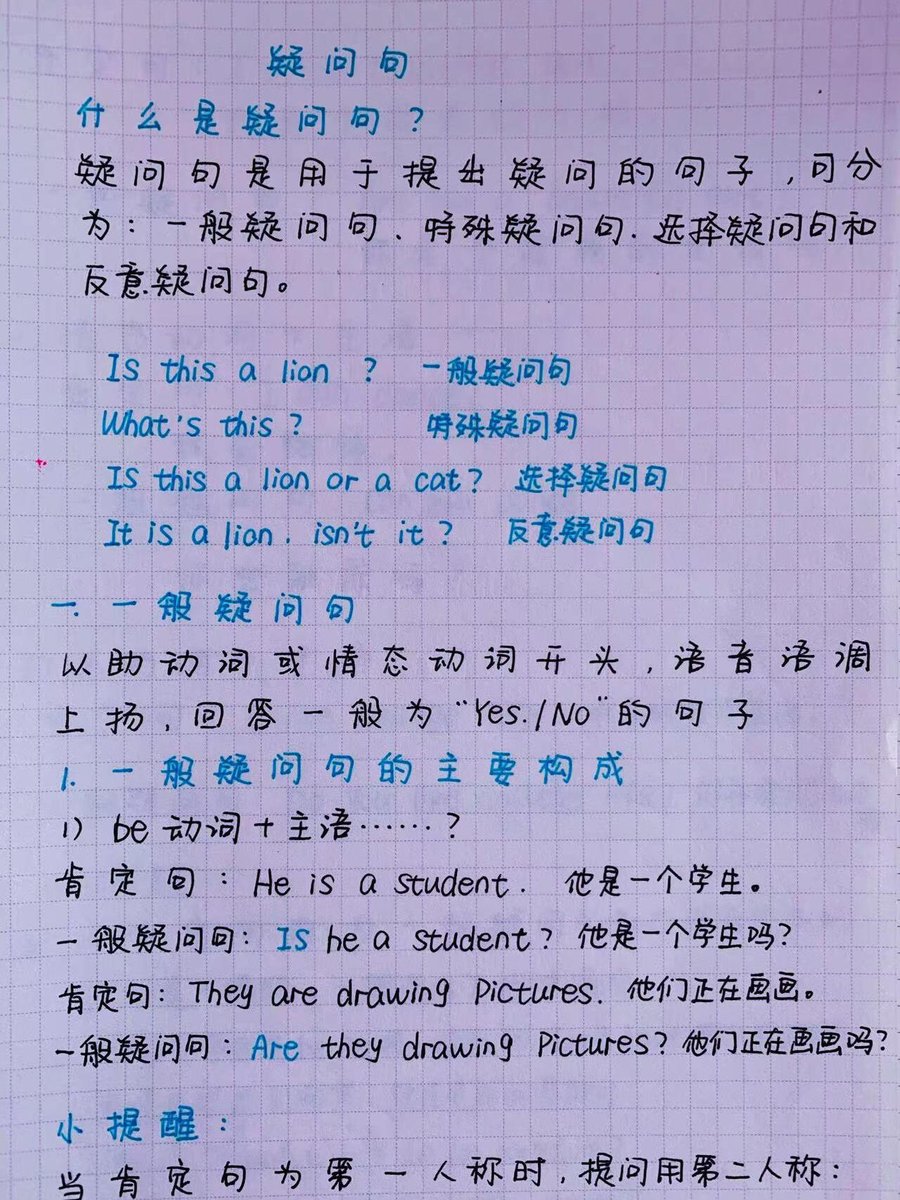 疑问句
什么是疑问句?
疑问句是用于提出疑问的句子,可分
为:一般疑问句、特殊疑问句.选择疑问句和
反意疑问句。
Is this a lion ? 一般疑问句
What's this? 特殊疑问句
Is this a lion or a cat? 选择疑问句
It is a lion. isn't it? 反意疑问句
一.一般疑问句
以助动词或情态动词开头,语音语调
上扬,回答一般为“Yes./No”的句子
1.一般疑问句的主要构成
1) be动词+主语……?
肯定句:He is a student. 他是一个学生。
一般疑问句:Is he a student? 他是一个学生吗?
肯定句:They are drawing Pictures. 他们正在画画。
一般疑问问:Are they drawing Pictures?他们正在画画吗?
小提醒:
当肯定句为第一人称时,提问用第二人称: